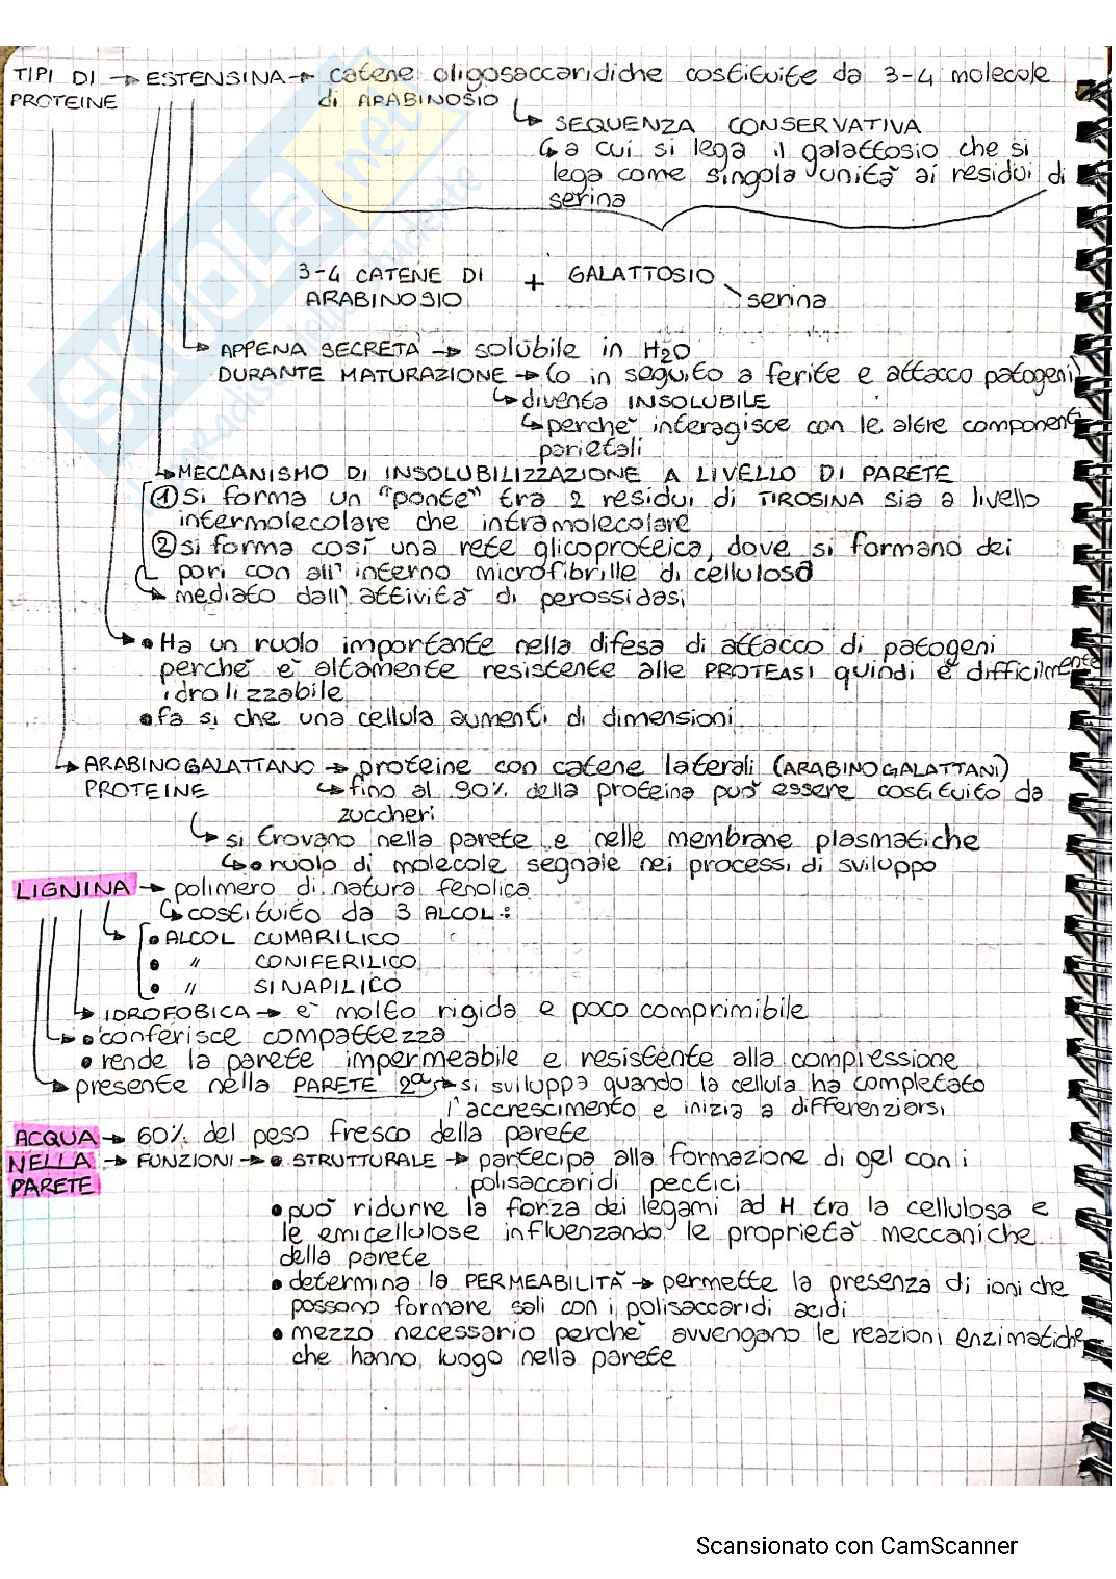 TIPI DI → ESTENSINA → catene oligosaccaridiche costituite da 3-4 molecole
PROTEINE di ARABINOSIO
↳ SEQUENZA CONSERVATIVA
↳ a cui si lega il galattosio che si
lega come singola unità ai residui di
serina
3-4 CATENE DI + GALATTOSIO
ARABINOSIO serina
↳ APPENA SECRETA → solubile in H2O
DURANTE MATURAZIONE → (o in seguito a ferite e attacco patogeni)
↳ diventa INSOLUBILE
↳ perché interagisce con le altre componenti
parietali
↳ MECCANISMO DI INSOLUBILIZZAZIONE A LIVELLO DI PARETE
① Si forma un "ponte" tra 2 residui di TIROSINA sia a livello
intermolecolare che intramolecolare
② si forma così una rete glicoproteica, dove si formano dei
pori con all'interno microfibrille di cellulosa
↳ mediato dall'attività di perossidasi
• Ha un ruolo importante nella difesa di attacco di patogeni
perché è altamente resistente alle PROTEASI quindi è difficilmente
idrolizzabile
• fa si che una cellula aumenti di dimensioni
↳ ARABINOGALATTANO → proteine con catene laterali (ARABINOGALATTANI)
PROTEINE ↳ fino al 90% della proteina può essere costituito da
zuccheri
↳ si trovano nella parete e nelle membrane plasmatiche
↳ • ruolo di molecole segnale nei processi di sviluppo
LIGNINA → polimero di natura fenolica
↳ costituito da 3 ALCOL:
• ALCOL CUMARILICO
• " CONIFERILICO
• " SINAPILICO
↳ IDROFOBICA → è molto rigida e poco comprimibile
↳ • conferisce compattezza
• rende la parete impermeabile e resistente alla compressione
↳ presente nella PARETE 2ª → si sviluppa quando la cellula ha completato
l'accrescimento e inizia a differenziarsi
ACQUA → 60% del peso fresco della parete
NELLA → FUNZIONI → • STRUTTURALE → partecipa alla formazione di gel con i
PARETE polisaccaridi pectici
• può ridurre la forza dei legami ad H tra la cellulosa e
le emicellulose influenzando le proprietà meccaniche
della parete
• determina la PERMEABILITÀ → permette la presenza di ioni che
possono formare sali con i polisaccaridi acidi
• mezzo necessario perché avvengano le reazioni enzimatiche
che hanno luogo nella parete
Scansionato con CamScanner